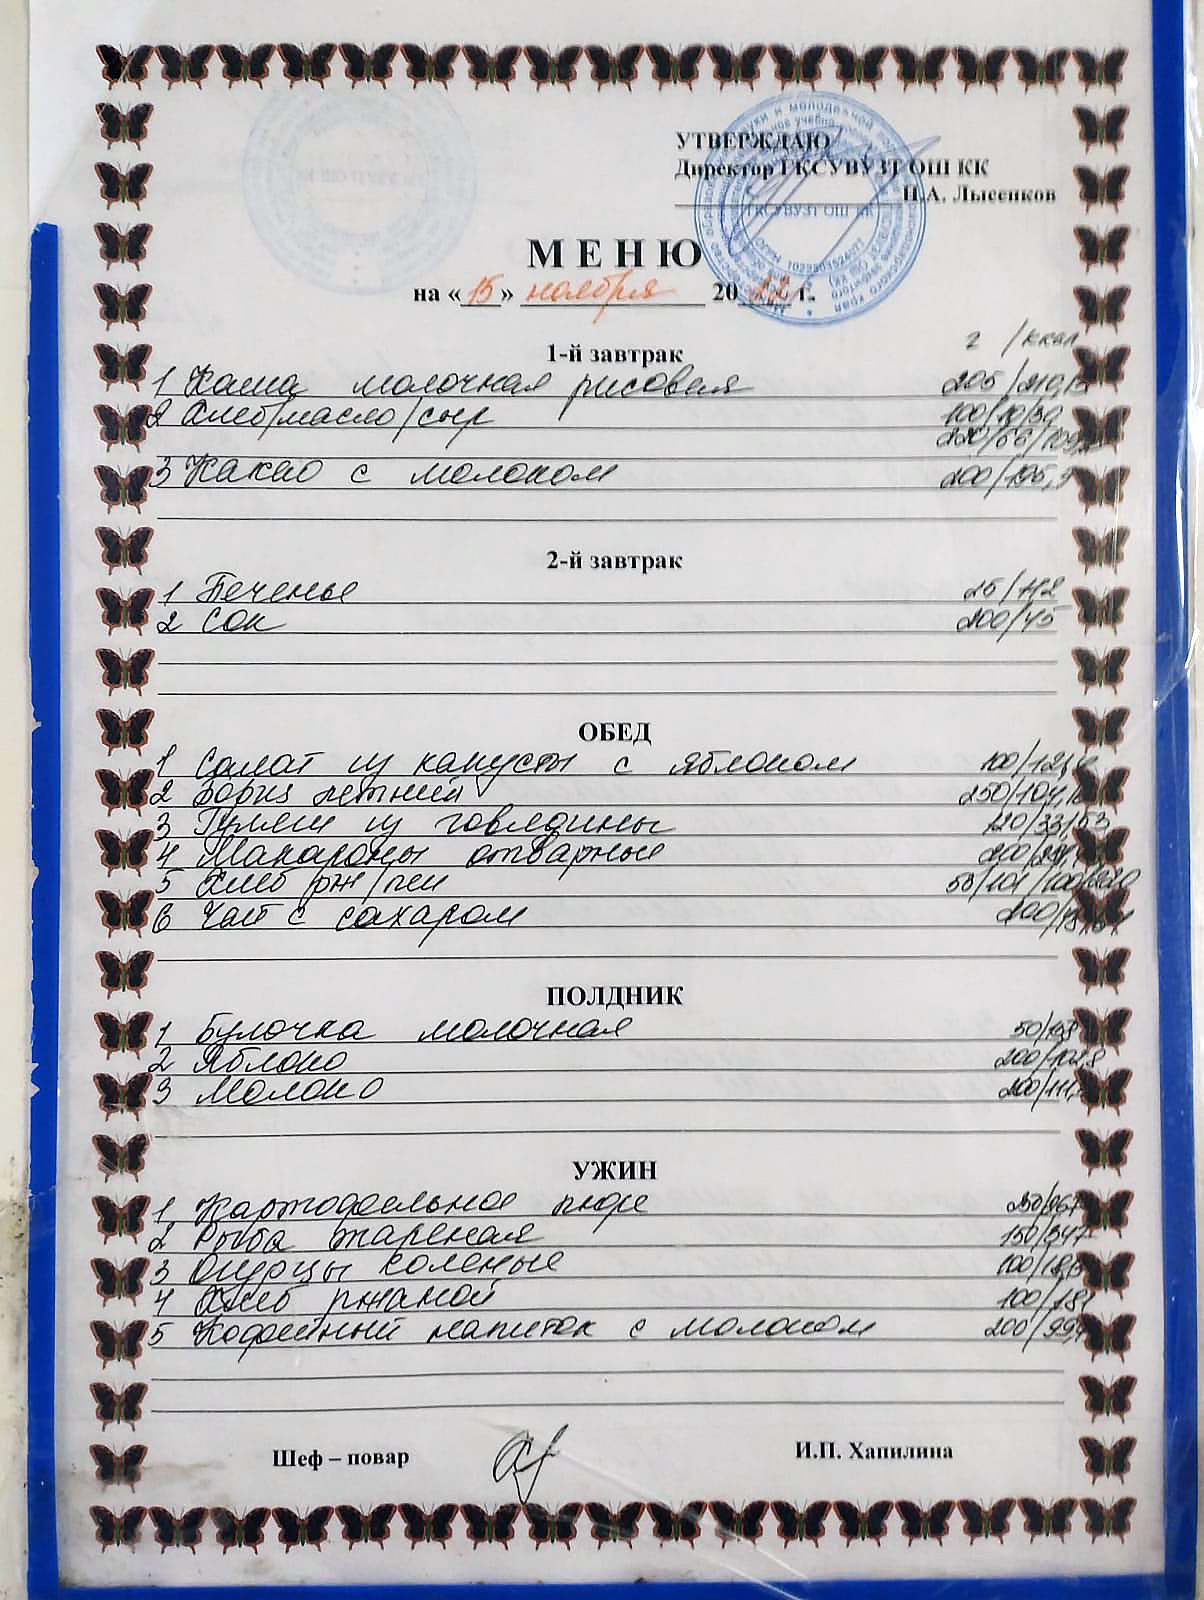 УТВЕРЖДАЮ
Директор ГКСУВУЗТ ОШ КК
Н.А. Лысенков
МЕНЮ
на «15» ноября 2022 г.
1-й завтрак г /ккал
1 Каша молочная рисовая 205/210,
2 Хлеб/масло/сыр 100/10/30
220/66/109
3 Какао с молоком 200/195,
2-й завтрак
1 Печенье 25/112
2 Сок 200/45
ОБЕД
1 Салат из капусты с яблоком 100/121,
2 Борщ летний 250/104,
3 Гуляш из говядины 120/
4 Макароны отварные 200/
5 Хлеб рж/пш 50/101/100/220
6 Чай с сахаром 200/
ПОЛДНИК
1 Булочка молочная 50/158
2 Яблоко 200/
3 Молоко 200/111,
УЖИН
1 Картофельное пюре
2 Рыба жареная 150/347
3 Огурцы соленые 100/
4 Хлеб ржаной 100/181
5 Кофейный напиток с молоком 200/99,
Шеф – повар И.П. Хапилина